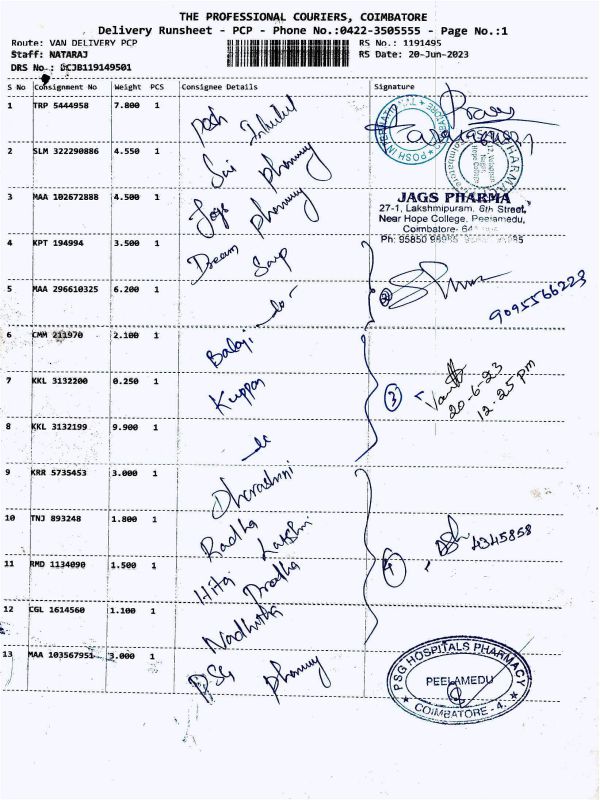 THE PROFESSIONAL COURIERS, COIMBATORE
Delivery Runsheet - PCP - Phone No.:0422-3505555 - Page No.:1
Route: VAN DELIVERY PCP RS No.: 1191495
Staff: NATARAJ RS Date: 20-Jun-2023
DRS No.: DCJB119149501
S No Consignment No Weight PCS Consignee Details Signature
1 TRP 5444958 7.800 1 Posh
2 SLM 322290886 4.550 1 Sri Pharmacy
3 MAA 102672888 4.500 1 Jags Pharmacy
JAGS PHARMA
27-1, Lakshmipuram, 6th Street,
Near Hope College, Peelamedu,
Coimbatore-
Ph: 95850
4 KPT 194994 3.500 1 Dream Soup
5 MAA 296610325 6.200 1 -do- 2 9095566223
6 CMM 211970 2.100 1 Balaji
7 KKL 3132200 0.250 1 Kuppan 3
20-6-23
12.25 pm
8 KKL 3132199 9.900 1 do
9 KRR 5735453 3.000 1 Dharashini
10 TNJ 893248 1.800 1 Radha Lakshmi 4345858
11 RMD 1134090 1.500 1 Hita Pradha 4
12 CGL 1614560 1.100 1 Nadhitha
13 MAA 103567951 3.000 1 PSG Pharmacy
PSG HOSPITALS PHARMACY
PEELAMEDU
COIMBATORE - 4.